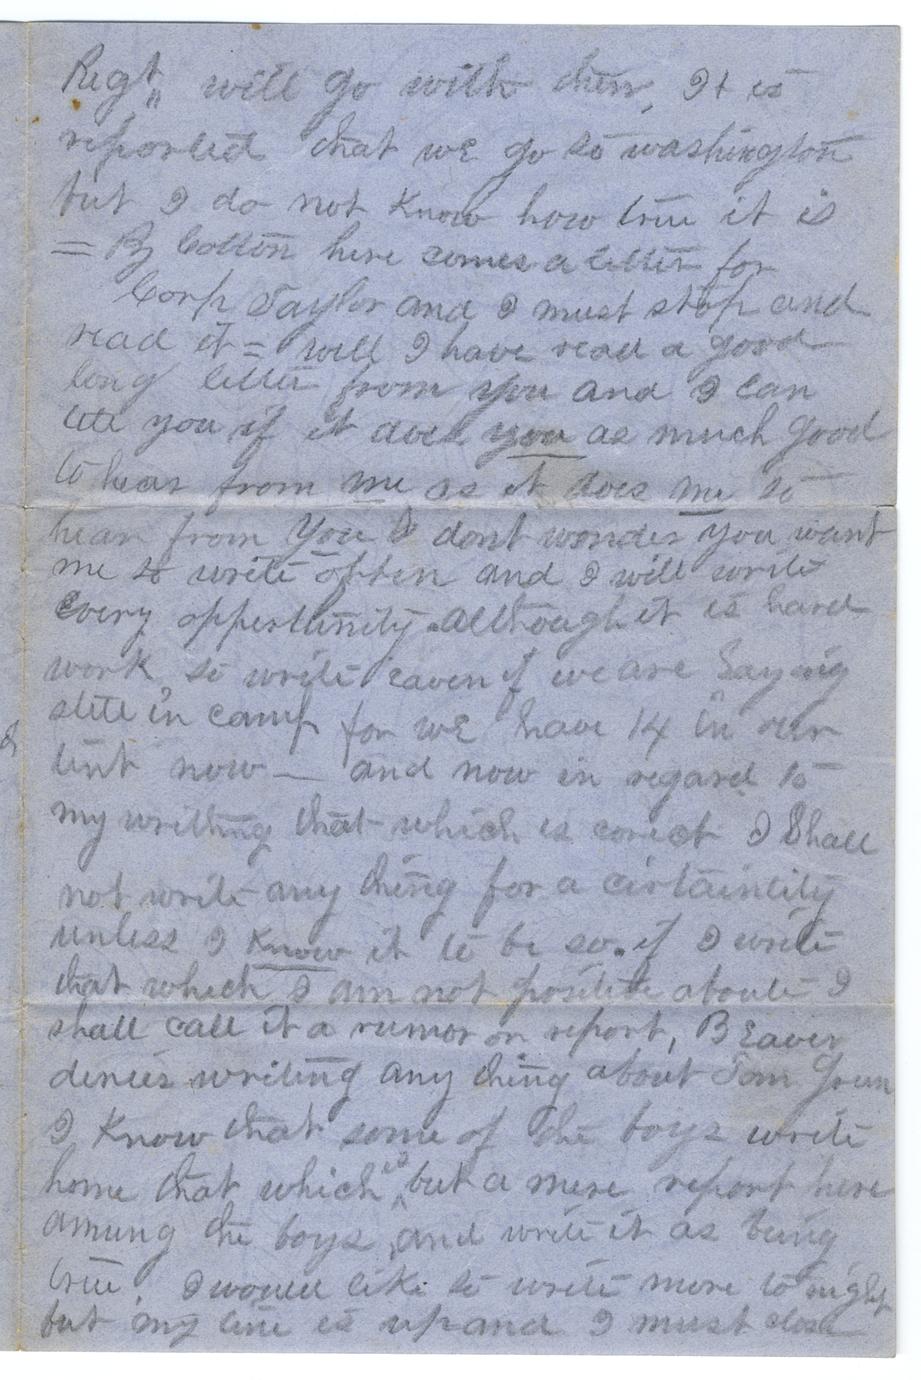 Regt" will go with them, It is
reported that we go to washington
but I do not Know how true it is
= By Cotton here comes a letter for
Corp Taylor and I must stop and
read it = Well I have read a good
long letter from you and I can
tell you if it does you as much good
to hear from me as it does me to
hear from You I dont wonder you want
me to write often and I will write
Every oppertunity. although it is hard
work to write eaven if we are Saying
still in camp for we have 14 in our
tent now — and now in regard to
my writting that which is corect I Shall
not write any thing for a cirtaintity
unless I Know it to be so. if I write
that which I am not positive about I
shall call it a rumor or report, BEaver
denies writing any thing about Tom Green
I Know that some of the boys write
home that which is but a mere report here
amung the boys, and write it as being
true. I would like to write more to night
but my time is up and I must close